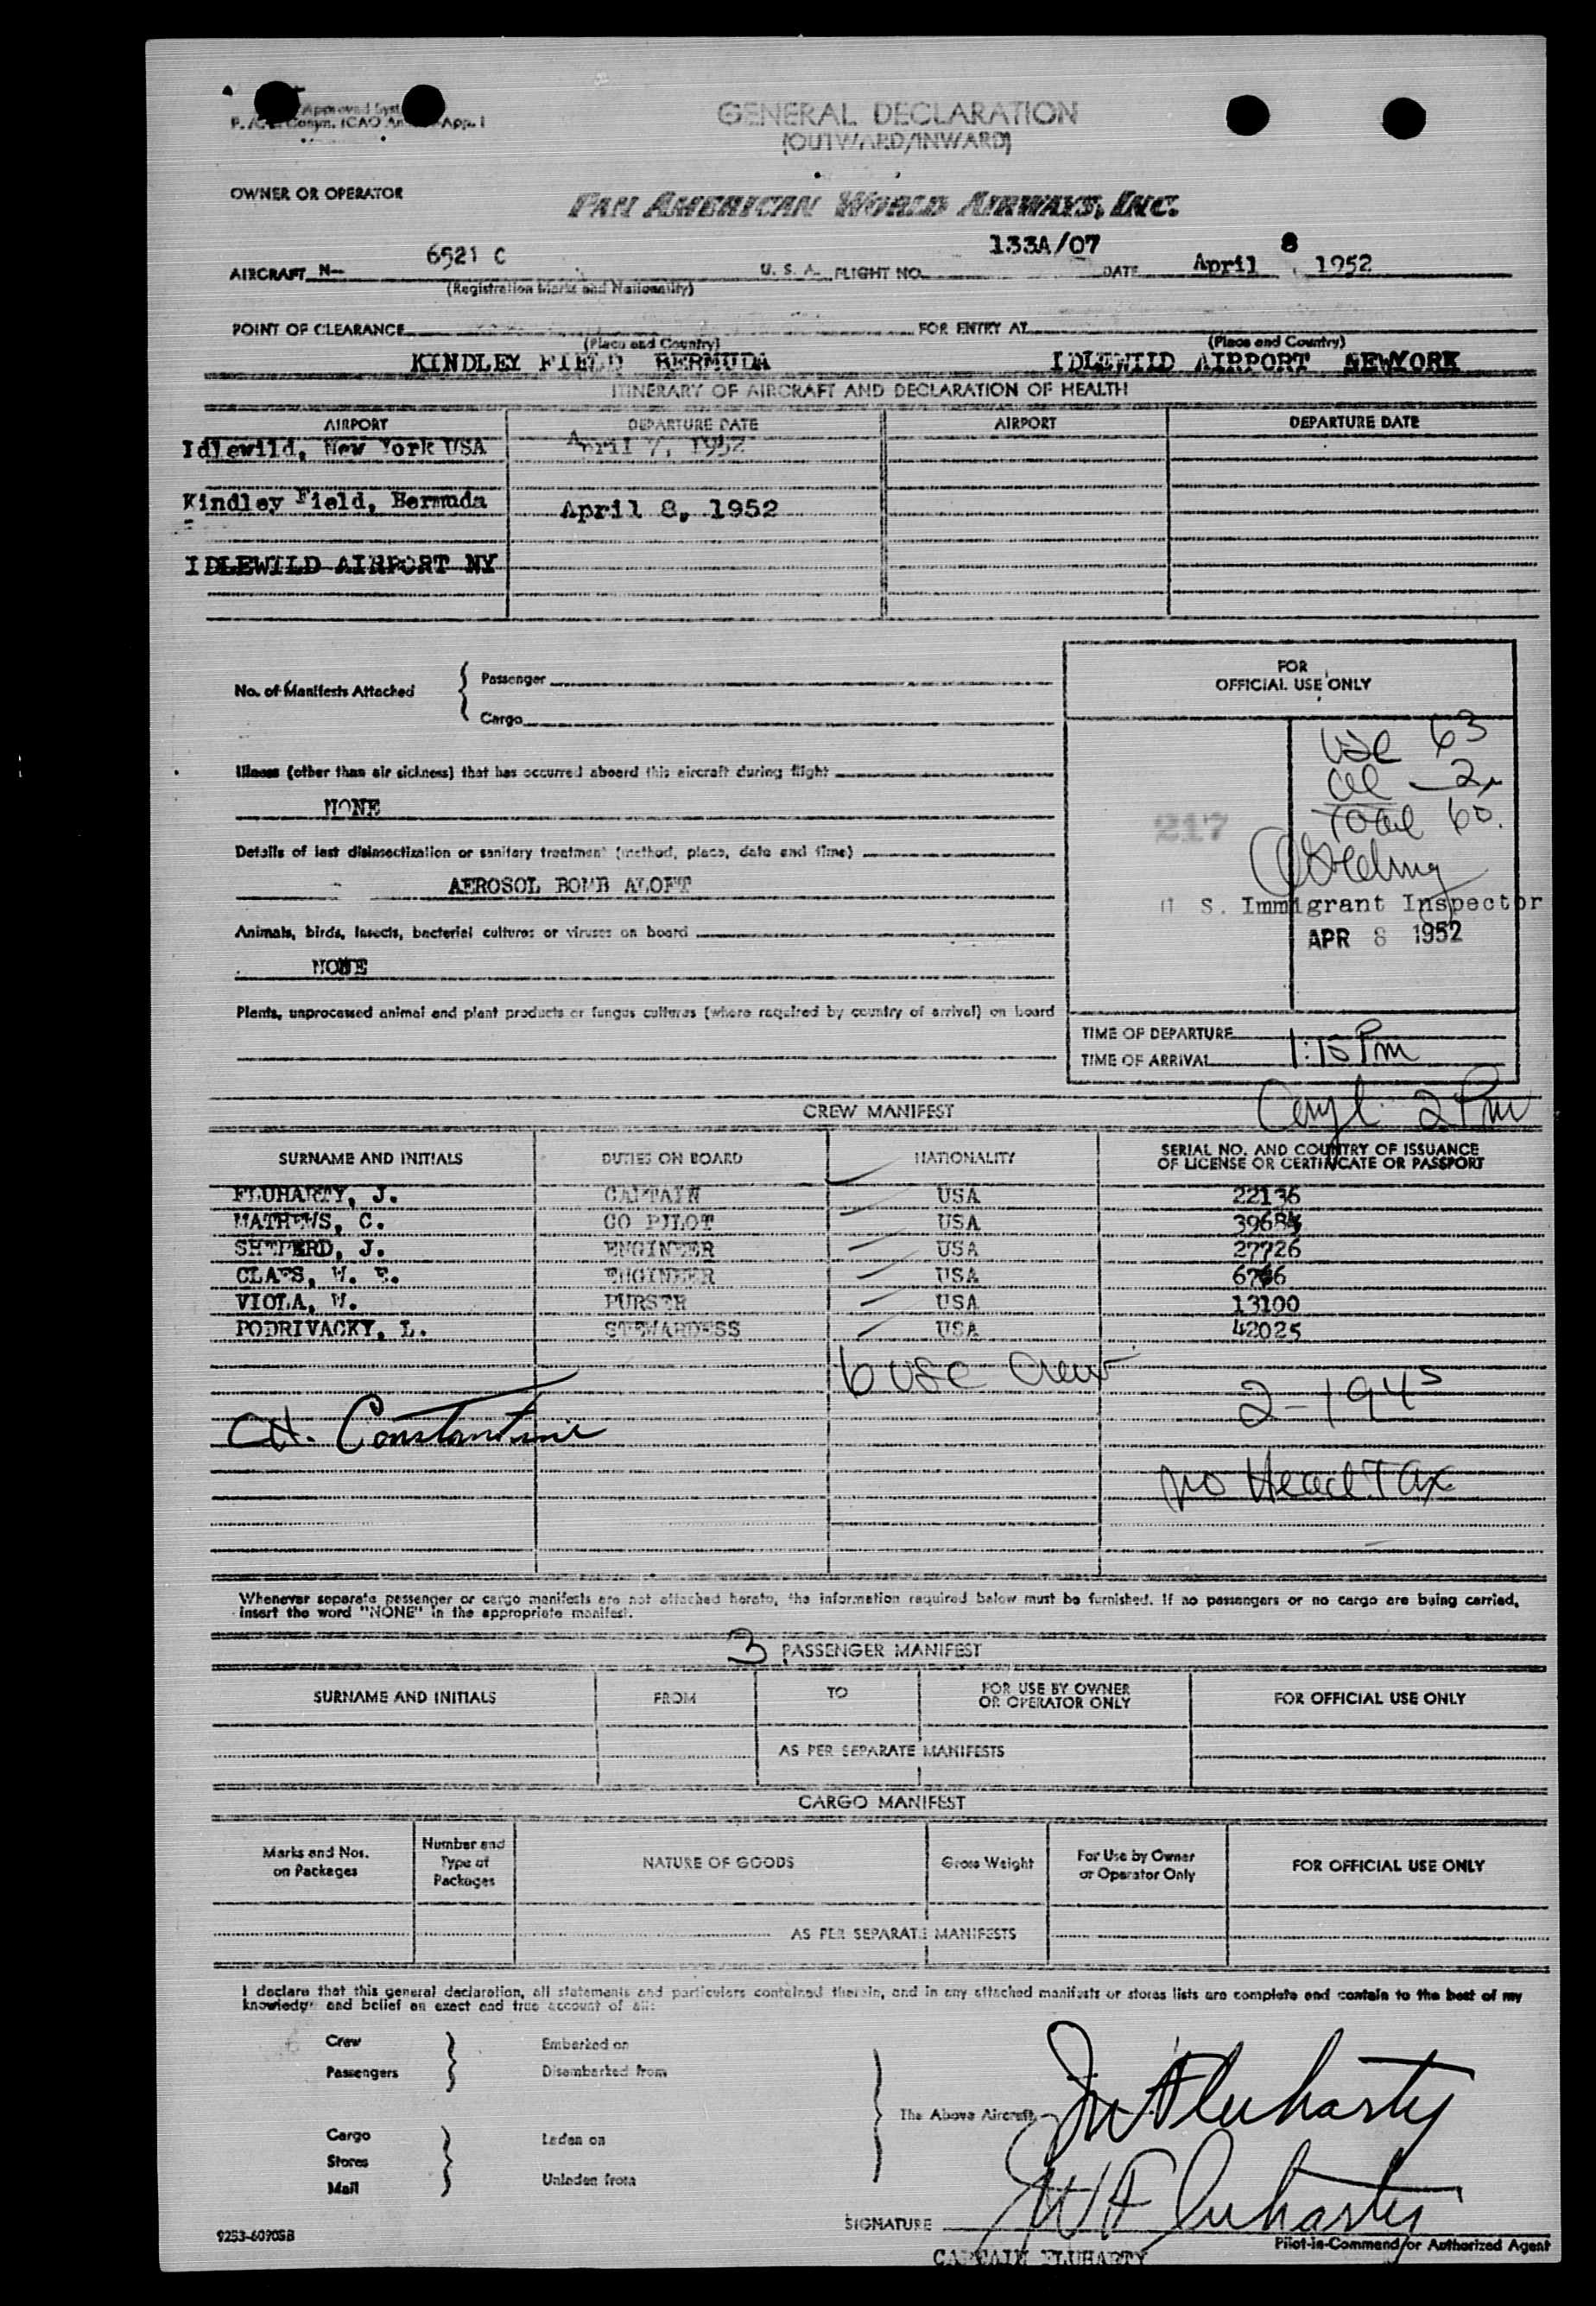 Approved Syst
Comm. ICAO An App. I
GENERAL DECLARATION
(OUTWARD/INWARD)
OWNER OR OPERATOR
PAN AMERICAN WORLD AIRWAYS, INC.
AIRCRAFT N- 6521 C U. S. A. FLIGHT NO. 133A/07 DATE April 8, 1952
(Registration Marks and Nationality)
POINT OF CLEARANCE FOR ENTRY AT
(Place and Country) (Place and Country)
KINDLEY FIELD BERMUDA IDLEWILD AIRPORT NEWYORK
ITINERARY OF AIRCRAFT AND DECLARATION OF HEALTH
AIRPORT DEPARTURE DATE AIRPORT DEPARTURE DATE
Idlewild, New York USA April 7, 1952
Kindley Field, Bermuda April 8, 1952
IDLEWILD AIRPORT NY
No. of Manifests Attached
Passenger
Cargo
FOR
OFFICIAL USE ONLY
USC 63
Total 60.
217
U S. Immigrant Inspector
APR 8 1952
Illness (other than air sickness) that has occurred aboard this aircraft during flight
NONE
Details of last disinsectization or sanitary treatment (method, place, date and time)
AEROSOL BOMB ALOFT
Animals, birds, insects, bacterial cultures or viruses on board
NONE
Plants, unprocessed animal and plant products or fungus cultures (where required by country of arrival) on board
TIME OF DEPARTURE
TIME OF ARRIVAL 1:15 Pm
2 Pm
CREW MANIFEST
SURNAME AND INITIALS DUTIES ON BOARD NATIONALITY SERIAL NO. AND COUNTRY OF ISSUANCE
OF LICENSE OR CERTIFICATE OR PASSPORT
FLUHARTY, J. CAPTAIN USA 22136
MATHEWS, C. CO PILOT USA
SHEPERD, J. ENGINEER USA 27726
CLAES, W. E. ENGINEER USA
VIOLA, W. PURSER USA 13100
PODRIVACKY, L. STEWARDESS USA 42025
6 USC Crew
2-I94s
C.H. Constantine
No Head Tax
Whenever separate passenger or cargo manifests are not attached hereto, the information required below must be furnished. If no passengers or no cargo are being carried,
insert the word "NONE" in the appropriate manifest.
3 PASSENGER MANIFEST
SURNAME AND INITIALS FROM TO FOR USE BY OWNER
OR OPERATOR ONLY FOR OFFICIAL USE ONLY
AS PER SEPARATE MANIFESTS
CARGO MANIFEST
Marks and Nos.
on Packages
Number and
Type of
Packages
NATURE OF GOODS
Gross Weight
For Use by Owner
or Operator Only
FOR OFFICIAL USE ONLY
AS PER SEPARATE MANIFESTS
I declare that this general declaration, all statements and particulars contained therein, and in any attached manifests or stores lists are complete and contain to the best of my
knowledge and belief an exact and true account of all:
Crew Embarked on
Passengers Disembarked from
The Above Aircraft
Cargo Laden on
Stores
Mail Unladen from
JW Fluharty
JW Fluharty
SIGNATURE
Pilot-in-Command or Authorized Agent
CAPTAIN FLUHARTY
9253-6090SB